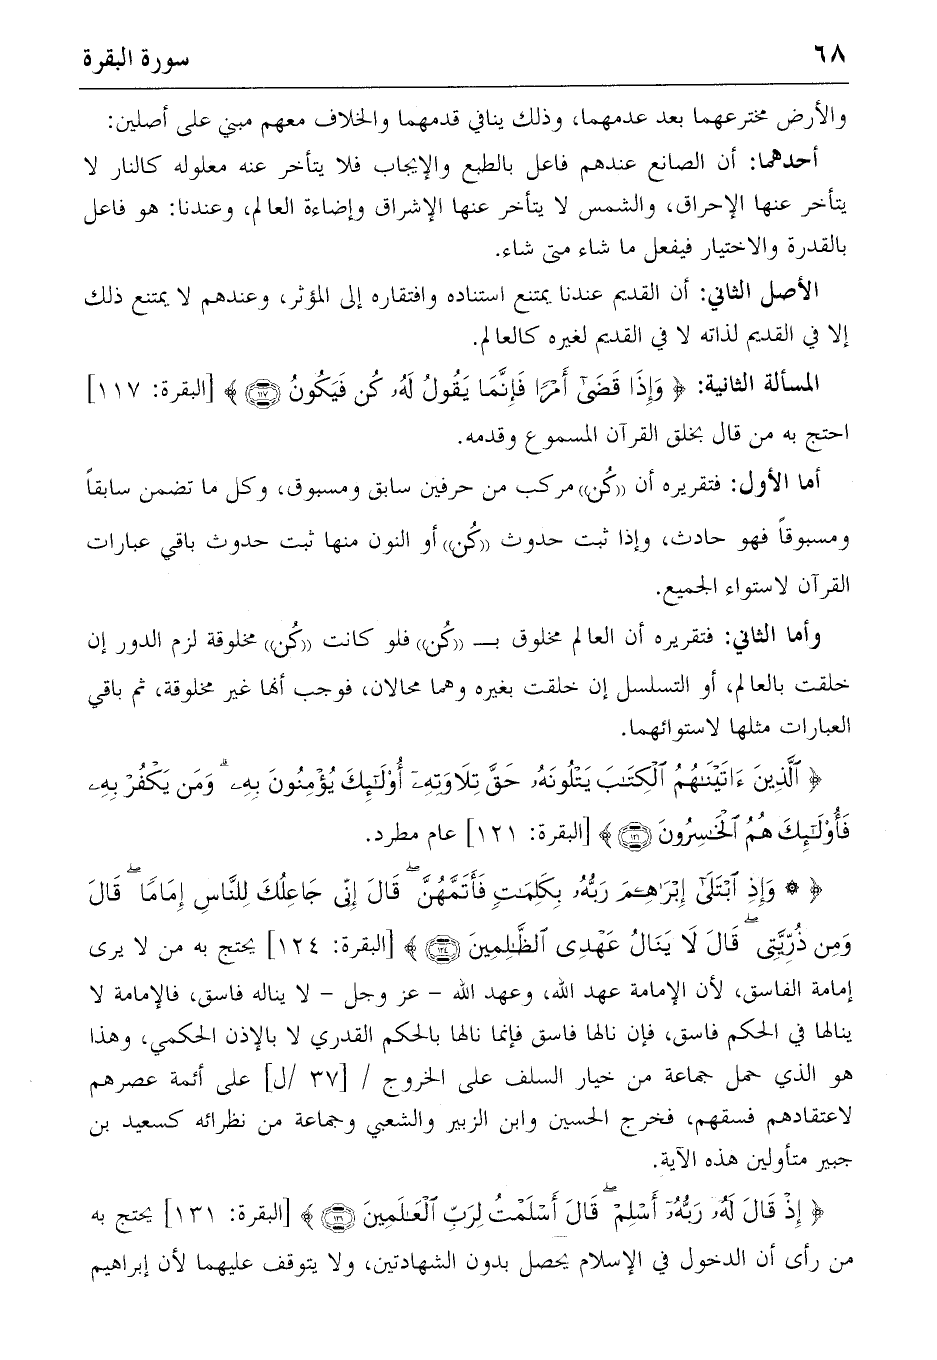 ٦٨
سورة البقرة
والأرض مخترعهما بعد عدمهما، وذلك ينافي قدمهما والخلاف معهم مبني على أصلين:
أحدهما: أن الصانع عندهم فاعل بالطبع والإيجاب فلا يتأخر عنه معلوله كالنار لا
يتأخر عنها الإحراق، والشمس لا يتأخر عنها الإشراق وإضاءة العالم، وعندنا: هو فاعل
بالقدرة والاختيار فيفعل ما شاء متى شاء.
الأصل الثاني: أن القديم عندنا يمتنع استناده وافتقاره إلى المؤثر، وعندهم لا يمتنع ذلك
إلا في القديم لذاته لا في القديم لغيره كالعالم.
المسألة الثانية: ﴿ وَإِذَا قَضَىٰٓ أَمْرًا فَإِنَّمَا يَقُولُ لَهُۥ كُن فَيَكُونُ ۝١١٧ ﴾ [البقرة: ١١٧]
احتج به من قال بخلق القرآن المسموع وقدمه.
أما الأول: فتقريره أن ((كُن)) مركب من حرفين سابق ومسبوق، وكل ما تضمن سابقاً
ومسبوقاً فهو حادث، وإذا ثبت حدوث ((كُن)) أو النون منها ثبت حدوث باقي عبارات
القرآن لاستواء الجميع.
وأما الثاني: فتقريره أن العالم مخلوق بـــ ((كُن)) فلو كانت ((كُن)) مخلوقة لزم الدور إن
خلقت بالعالم، أو التسلسل إن خلقت بغيره وهما محالان، فوجب أنها غير مخلوقة، ثم باقي
العبارات مثلها لاستوائهما.
﴿ ٱلَّذِينَ ءَاتَيْنَٰهُمُ ٱلْكِتَٰبَ يَتْلُونَهُۥ حَقَّ تِلَاوَتِهِۦٓ أُو۟لَٰٓئِكَ يُؤْمِنُونَ بِهِۦ ۗ وَمَن يَكْفُرْ بِهِۦ
فَأُو۟لَٰٓئِكَ هُمُ ٱلْخَٰسِرُونَ ۝١٢١ ﴾ [البقرة: ١٢١] عام مطرد.
﴿ ۞ وَإِذِ ٱبْتَلَىٰٓ إِبْرَٰهِـۧمَ رَبُّهُۥ بِكَلِمَٰتٍ فَأَتَمَّهُنَّ ۖ قَالَ إِنِّى جَاعِلُكَ لِلنَّاسِ إِمَامًا ۖ قَالَ
وَمِن ذُرِّيَّتِى ۖ قَالَ لَا يَنَالُ عَهْدِى ٱلظَّٰلِمِينَ ۝١٢٤ ﴾ [البقرة: ١٢٤] يحتج به من لا يرى
إمامة الفاسق، لأن الإمامة عهد الله، وعهد الله – عز وجل – لا يناله فاسق، فالإمامة لا
ينالها في الحكم فاسق، فإن نالها فاسق فإنما نالها بالحكم القدري لا بالإذن الحكمي، وهذا
هو الذي حمل جماعة من خيار السلف على الخروج / [٣٧ /ل] على أئمة عصرهم
لاعتقادهم فسقهم، فخرج الحسين وابن الزبير والشعبي وجماعة من نظرائه كسعيد بن
جبير متأولين هذه الآية.
﴿ إِذْ قَالَ لَهُۥ رَبُّهُۥٓ أَسْلِمْ ۖ قَالَ أَسْلَمْتُ لِرَبِّ ٱلْعَٰلَمِينَ ۝١٣١ ﴾ [البقرة: ١٣١] يحتج به
من رأى أن الدخول في الإسلام يحصل بدون الشهادتين، ولا يتوقف عليهما لأن إبراهيم